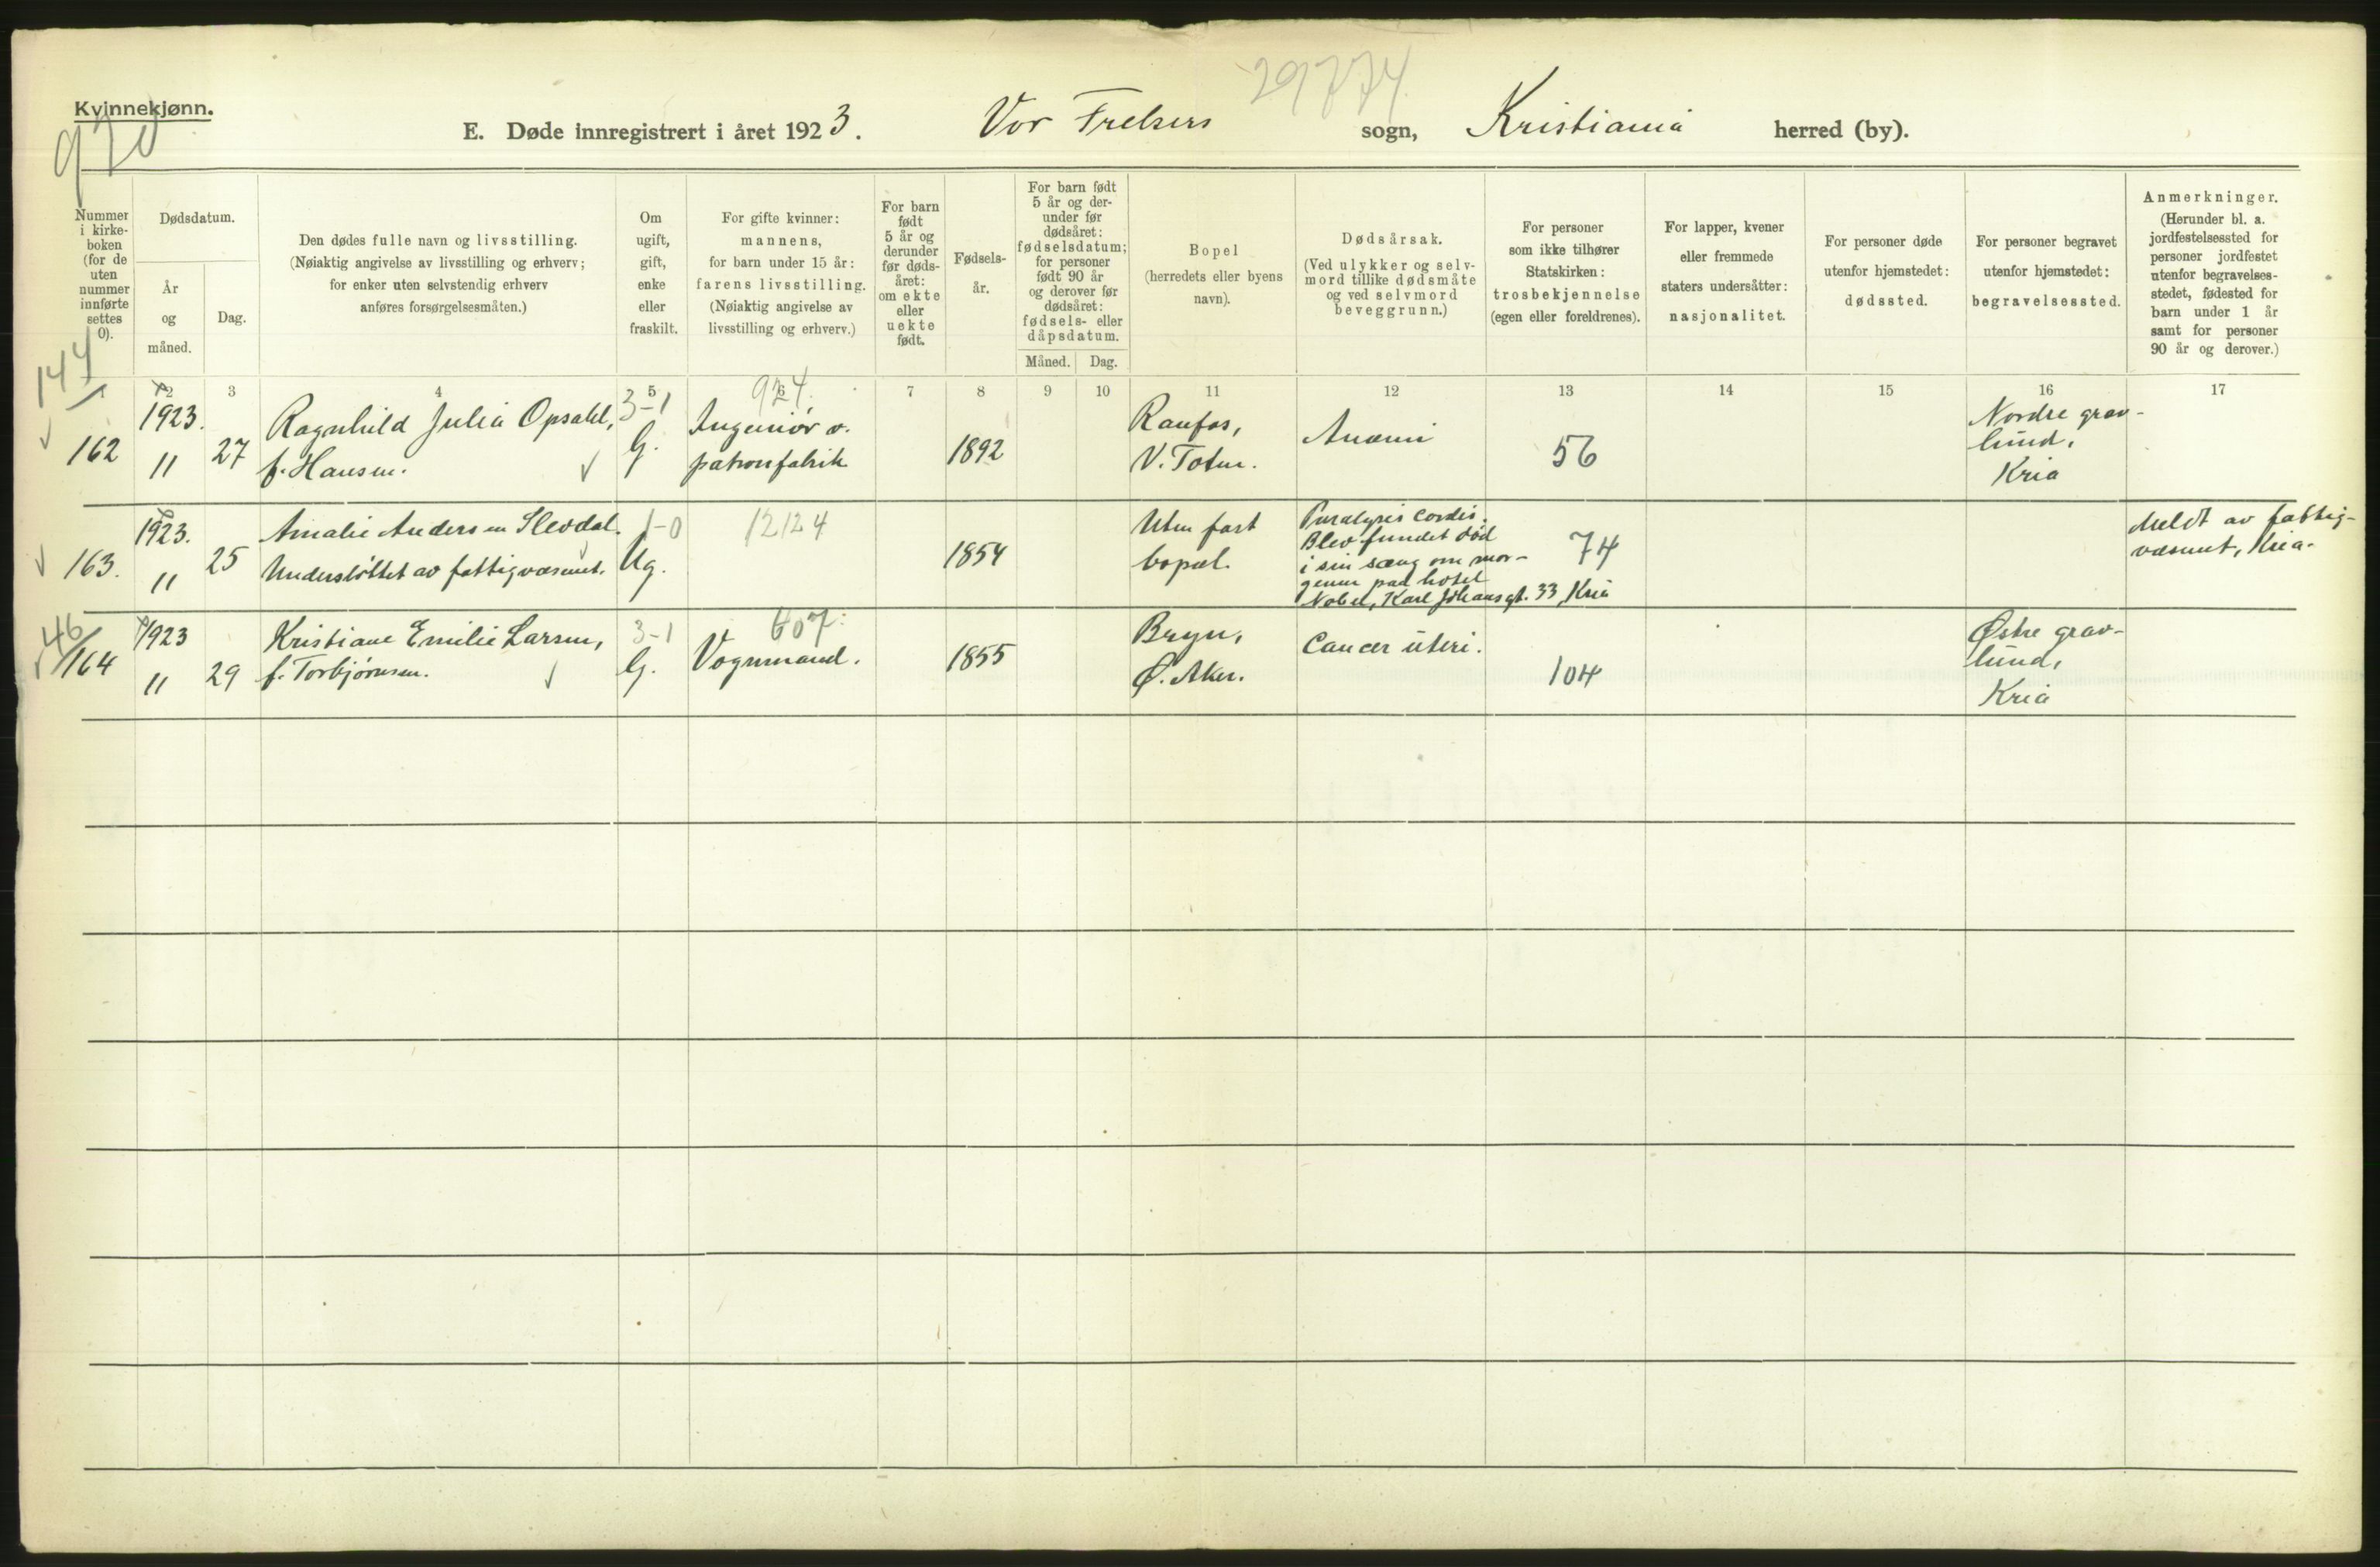 Kvinnekjønn.
970
29774
E. Døde innregistrert i året 1923. Vor Frelsers sogn, Kristiania herred (by).
Nummer
i kirke-
boken
(for de
uten
nummer
innførte
settes
0).
Dødsdatum.
År
og
måned.
Dag.
Den dødes fulle navn og livsstilling.
(Nøiaktig angivelse av livsstilling og erhverv;
for enker uten selvstendig erhverv
anføres forsørgelsesmåten.)
Om
ugift,
gift,
enke
eller
fraskilt.
For gifte kvinner:
mannens,
for barn under 15 år:
farens livsstilling.
(Nøiaktig angivelse av
livsstilling og erhverv.)
For barn
født
5 år og
derunder
før døds-
året:
om ekte
eller
uekte
født.
Fødsels-
år.
For barn født
5 år og der-
under før
dødsåret:
fødselsdatum;
for personer
født 90 år
og derover før
dødsåret:
fødsels- eller
dåpsdatum.
Måned. Dag.
Bopel
(herredets eller byens
navn).
Dødsårsak.
(Ved ulykker og selv-
mord tillike dødsmåte
og ved selvmord
beveggrunn.)
For personer
som ikke tilhører
Statskirken:
trosbekjennelse
(egen eller foreldrenes).
For lapper, kvener
eller fremmede
staters undersåtter:
nasjonalitet.
For personer døde
utenfor hjemstedet:
dødssted.
For personer begravet
utenfor hjemstedet:
begravelsessted.
Anmerkninger.
(Herunder bl. a.
jordfestelsessted for
personer jordfestet
utenfor begravelses-
stedet, fødested for
barn under 1 år
samt for personer
90 år og derover.)
1 2 3 4 5 6 7 8 9 10 11 12 13 14 15 16 17
144
162
1923.
11
27
Ragnhild Julia Opsahl,
f. Hansen.
3-1
G.
924.
Ingeniør v.
patronfabrik
1892
Raufos,
V. Toten.
Anæmi
56
Nordre grav-
lund,
Kria
163.
1923.
11
25
Amalie Andersen Slevdal.
Understøttet av fattigvæsenet.
1-0
Ug.
12124
1854
Uten fast
bopæl.
Paralysis cordis.
Blev fundet død
i sin sæng om mor-
genen paa hotel
Nobel, Karl Johansgt. 33, Kria
74
Meldt av fattig-
væsenet, Kria.
46
164
1923
11
29
Kristiane Emilie Larsen,
f. Torbjørnsen.
3-1
G.
607.
Vognmand.
1855
Bryn,
Ø. Aker.
Cancer uteri.
104
Østre grav-
lund,
Kria